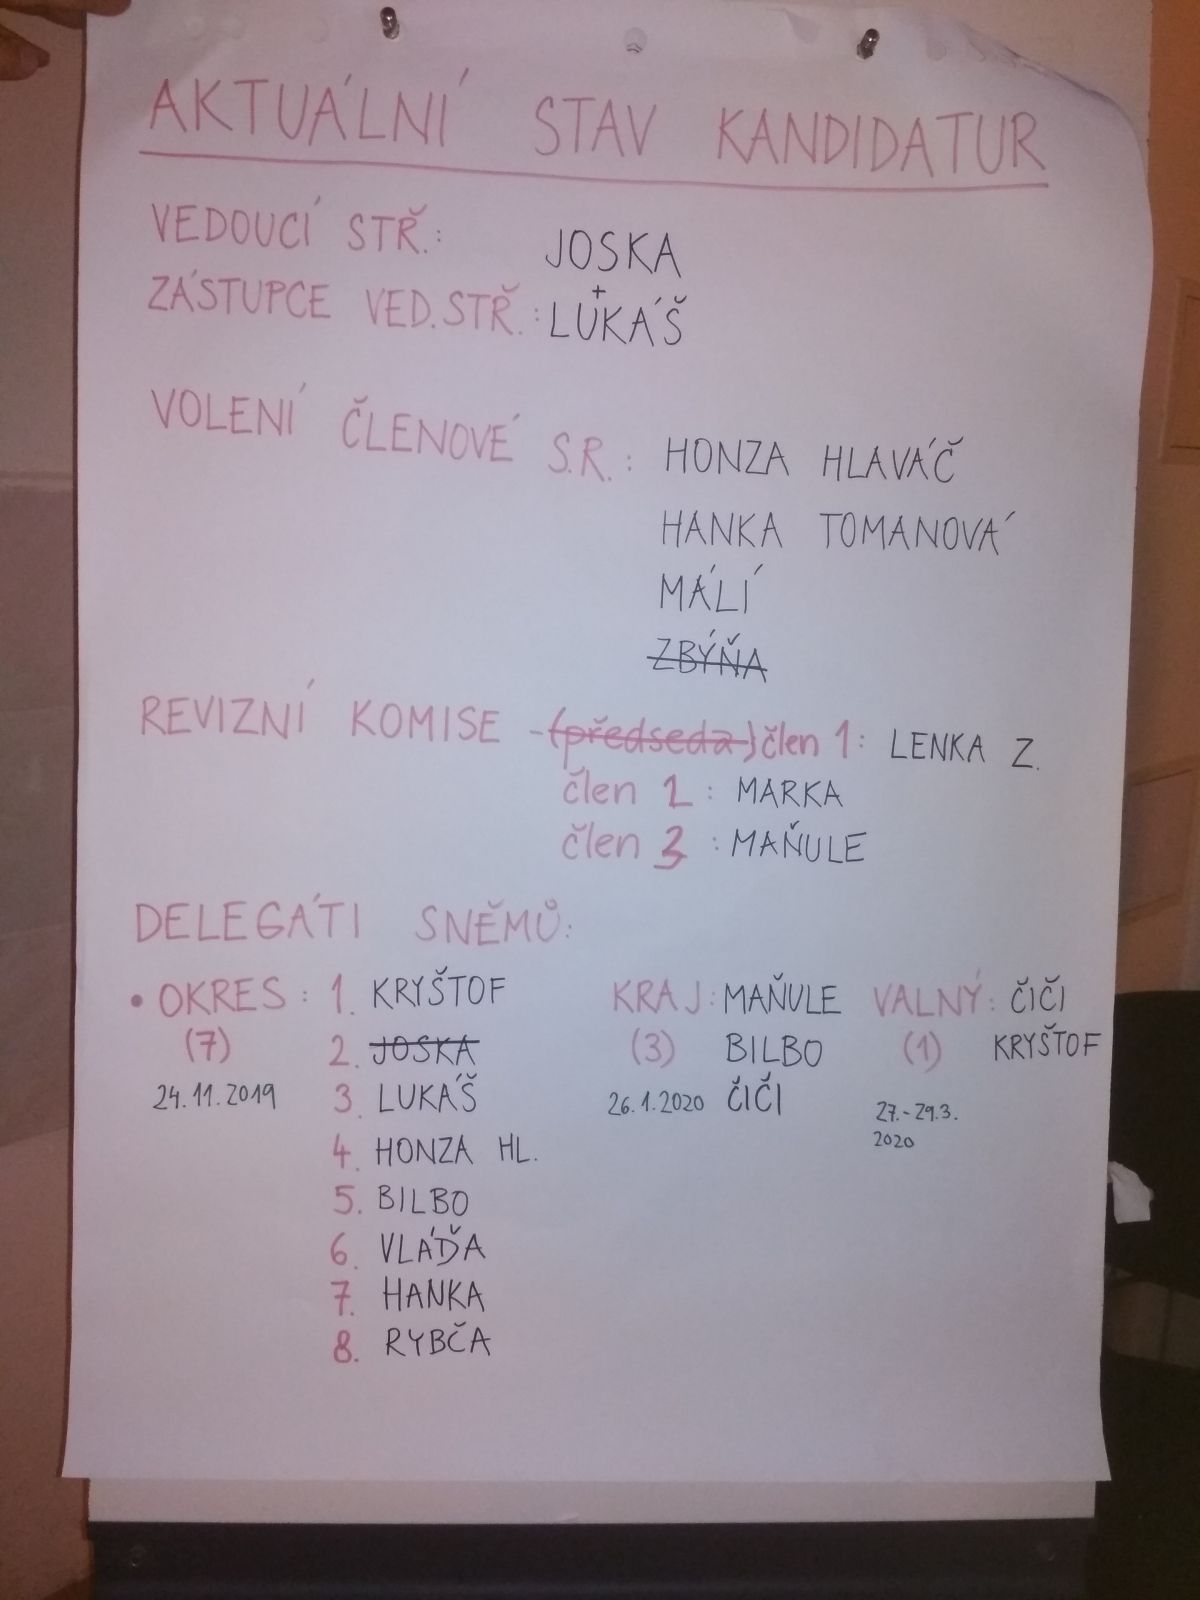 AKTUÁLNÍ STAV KANDIDATUR
VEDOUCÍ STŘ.: JOSKA
+
ZÁSTUPCE VED.STŘ.: LUKÁŠ
VOLENÍ ČLENOVÉ S.R.: HONZA HLAVÁČ
HANKA TOMANOVÁ
MÁLÍ
ZBÝŇA
REVIZNÍ KOMISE - (předseda) člen 1: LENKA Z.
člen 2: MARKA
člen 3: MAŇULE
DELEGÁTI SNĚMŮ:
• OKRES: 1. KRYŠTOF
(7) 2. JOSKA
24.11.2019 3. LUKÁŠ
4. HONZA HL.
5. BILBO
6. VLÁĎA
7. HANKA
8. RYBČA
KRAJ: MAŇULE
(3) BILBO
26.1.2020 ČIČI
VALNÝ: ČIČI
(1) KRYŠTOF
27.-29.3.
2020